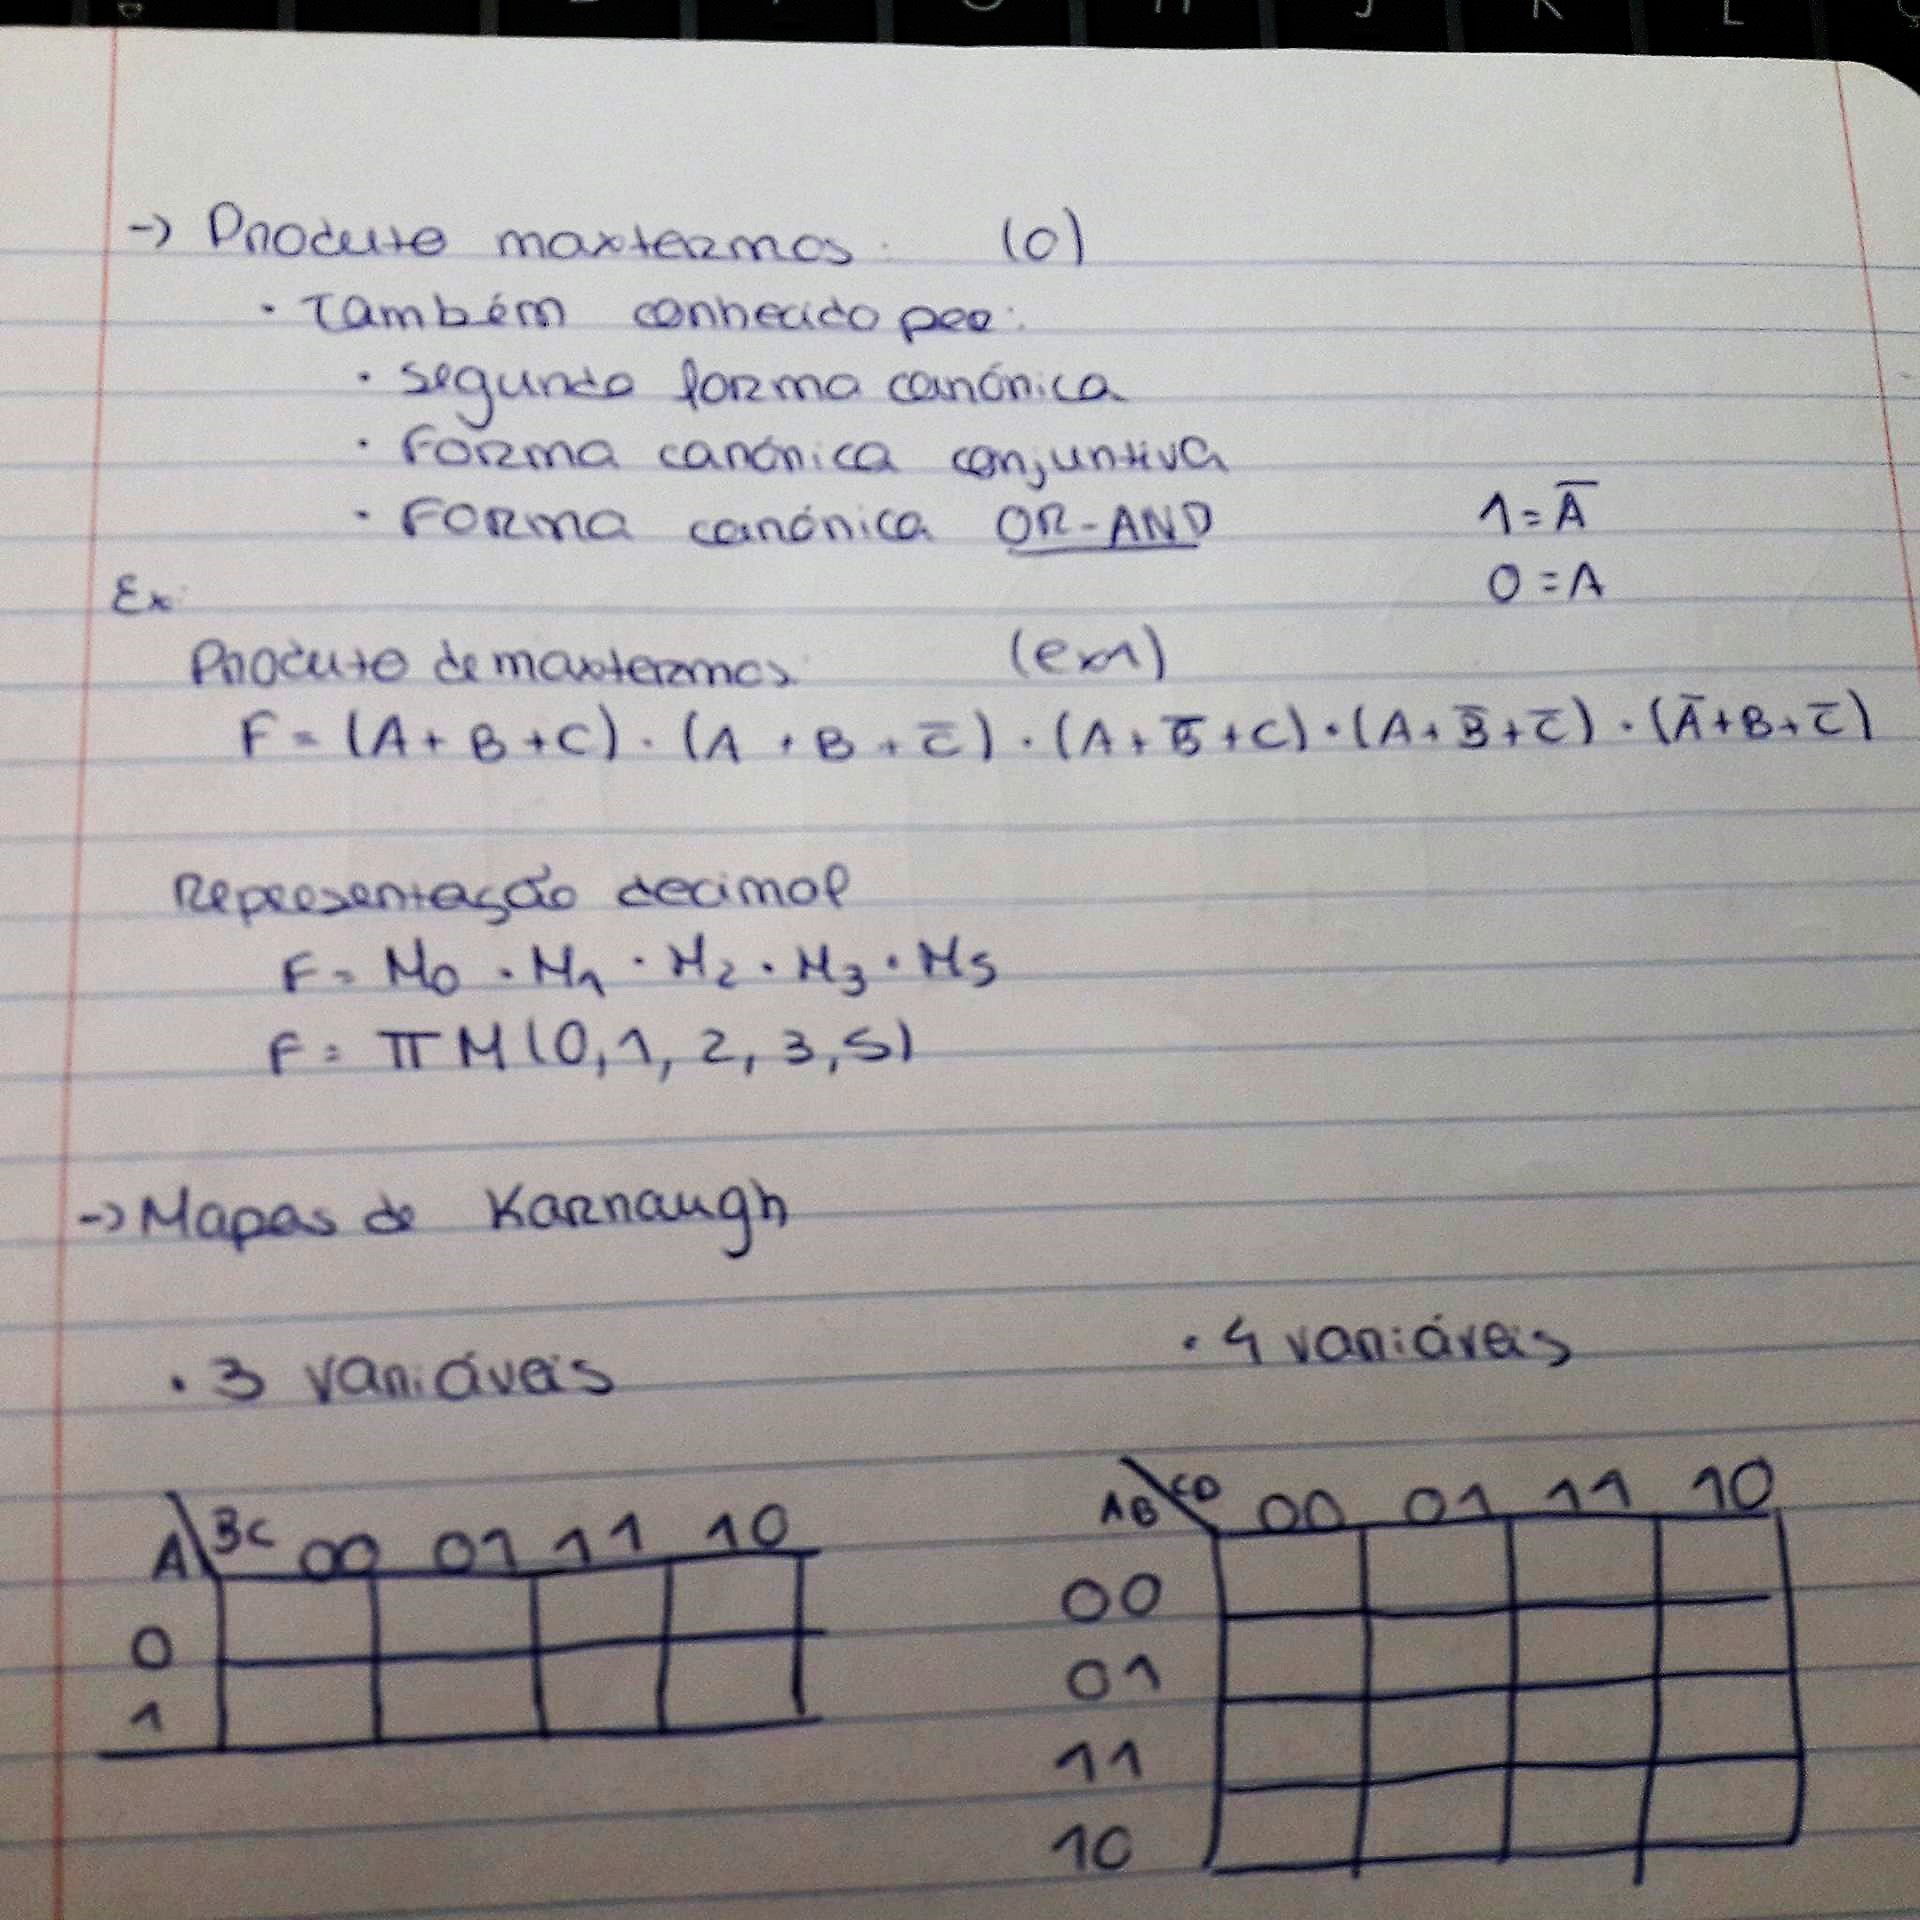 -> Produto maxtermos: (0)
· Também conhecido por:
· segunda forma canónica
· Forma canónica conjuntiva
· Forma canónica OR-AND
1 = A̅
0 = A
Ex:
Produto de maxtermos: (ex1)
F = (A + B + C) · (A + B + C̅) · (A + B̅ + C) · (A + B̅ + C̅) · (A̅ + B + C̅)
Representação decimal
F = M0 · M1 · M2 · M3 · M5
F = π M (0, 1, 2, 3, 5)
-> Mapas de Karnaugh
· 3 variáveis · 4 variáveis
A\BC 00 01 11 10
0
1
AB\CD 00 01 11 10
00
01
11
10